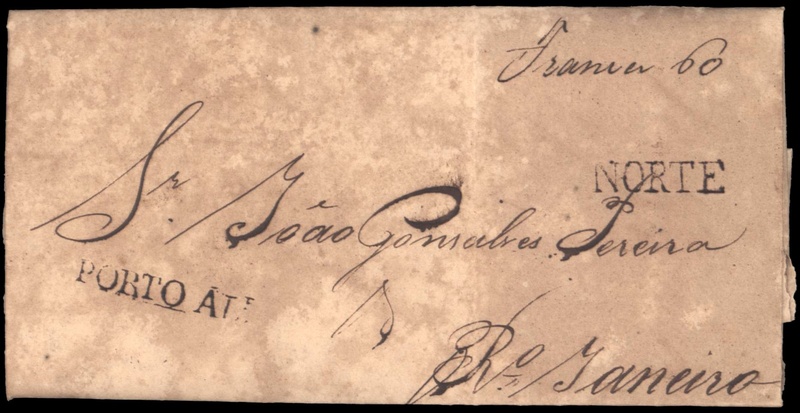 Franca 60
NORTE
Sr João Gonsalves Pereira
PORTO AL
Ro Janeiro